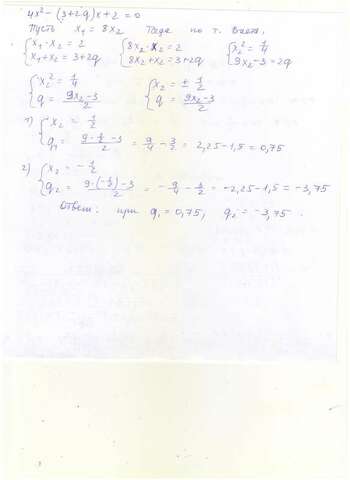 4x² - (3+2q)x + 2 = 0
Пусть x₁ = 8x₂ Тогда по т. Виета.
{x₁·x₂ = 2 {8x₂·x₂ = 2 {x₂² = 1/4
{x₁+x₂ = 3+2q {8x₂+x₂ = 3+2q {9x₂-3 = 2q
{x₂² = 1/4 {x₂ = ± 1/2
{q = (9x₂-3)/2 {q = (9x₂-3)/2
1) {x₂ = 1/2
{q₁ = (9·1/2-3)/2 = 9/4 - 3/2 = 2,25-1,5 = 0,75
2) {x₂ = -1/2
{q₂ = (9·(-1/2)-3)/2 = -9/4 - 3/2 = -2,25-1,5 = -3,75
Ответ: при q₁ = 0,75, q₂ = -3,75.